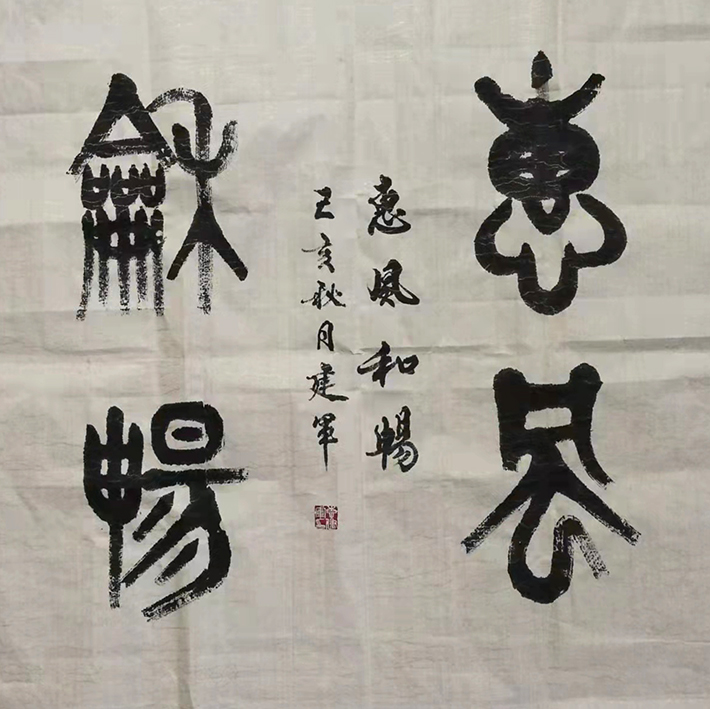 惠風
龢暢
惠風和暢
己亥秋月建軍